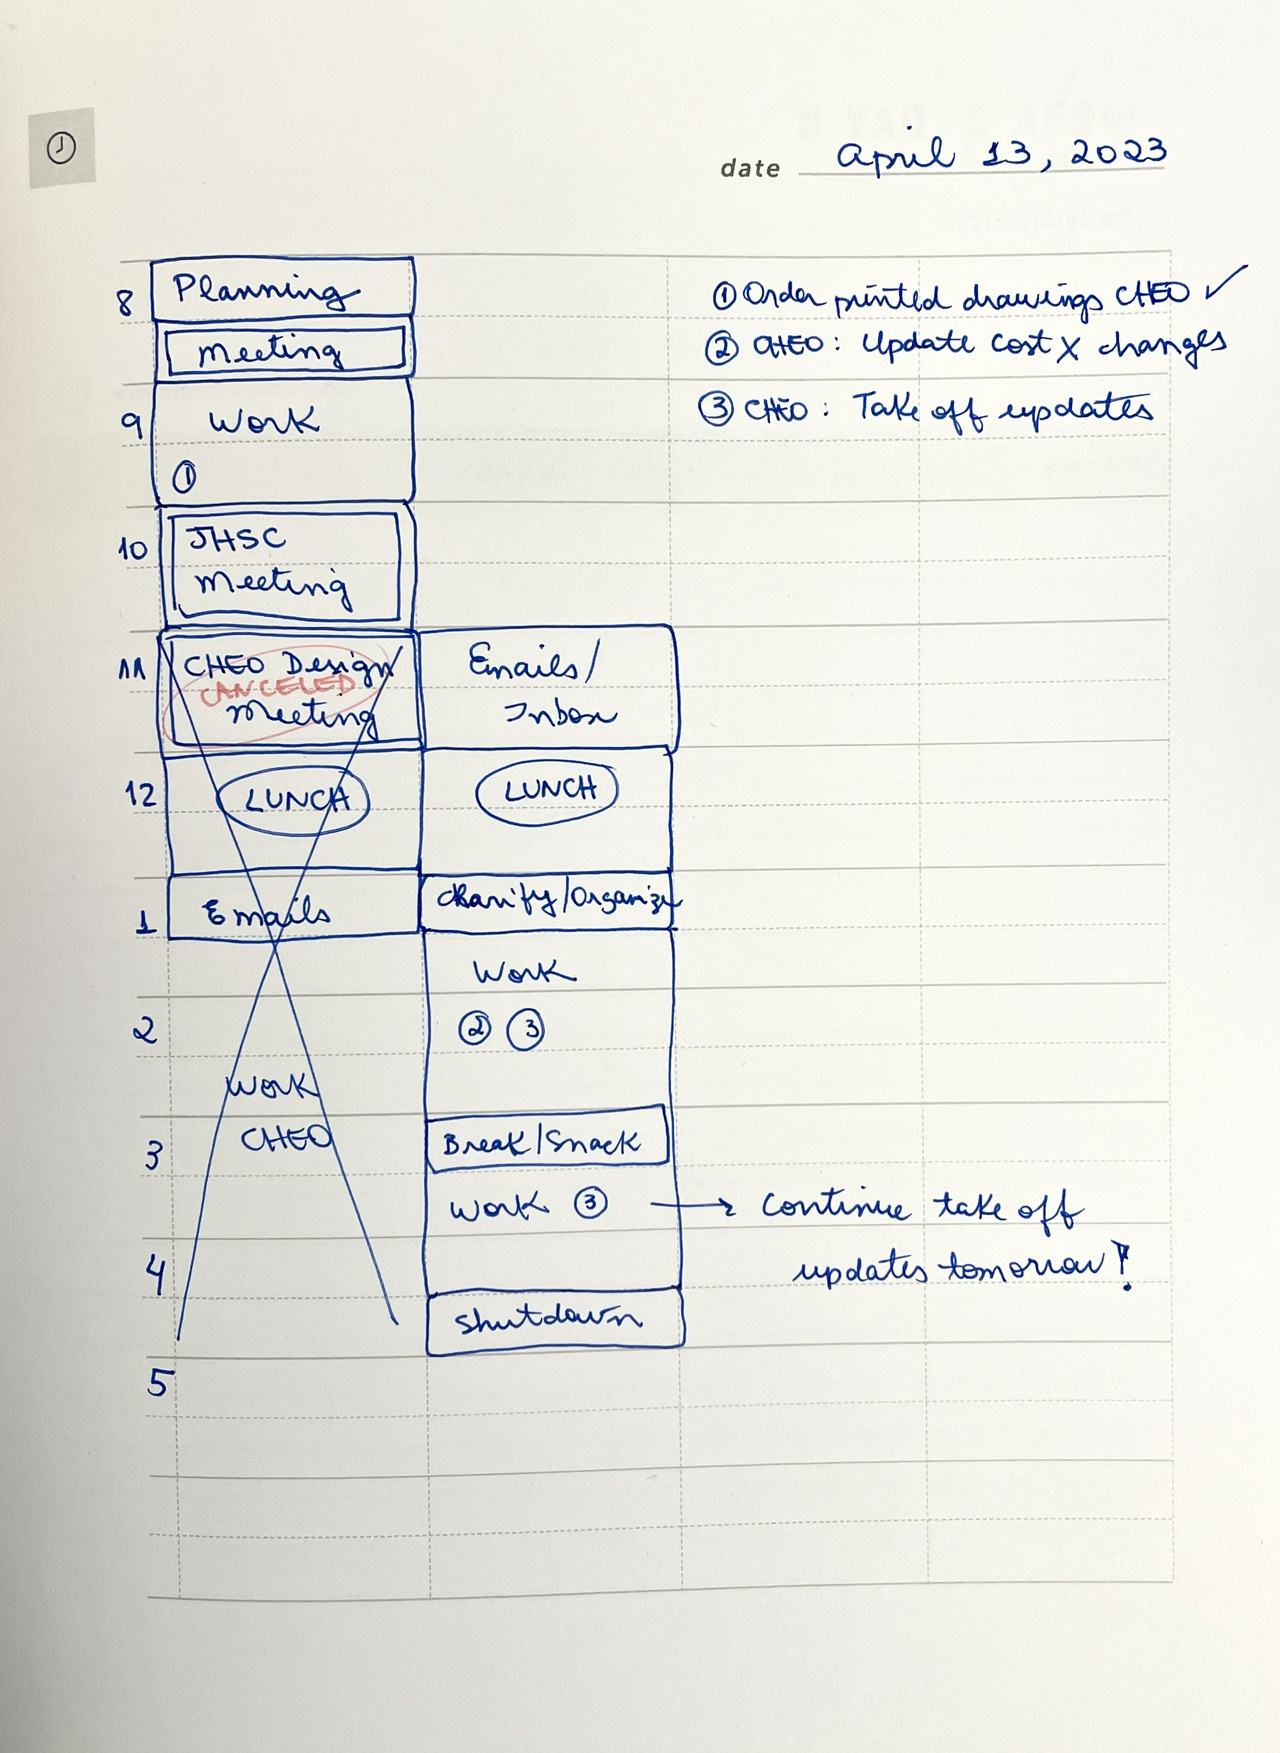 date April 13, 2023
8 Planning
Meeting
9 Work
①
10 JHSC
Meeting
11 CHEO Design
CANCELED
Meeting
12 LUNCH
1 Emails
2
WORK
3 CHEO
4
5
Emails/
Inbox
LUNCH
Clarify/Organize
Work
② ③
Break/Snack
Work ③ → Continue take off
updates tomorrow!
Shutdown
① Order printed drawings CHEO ✓
② CHEO: Update cost x changes
③ CHEO: Take off updates